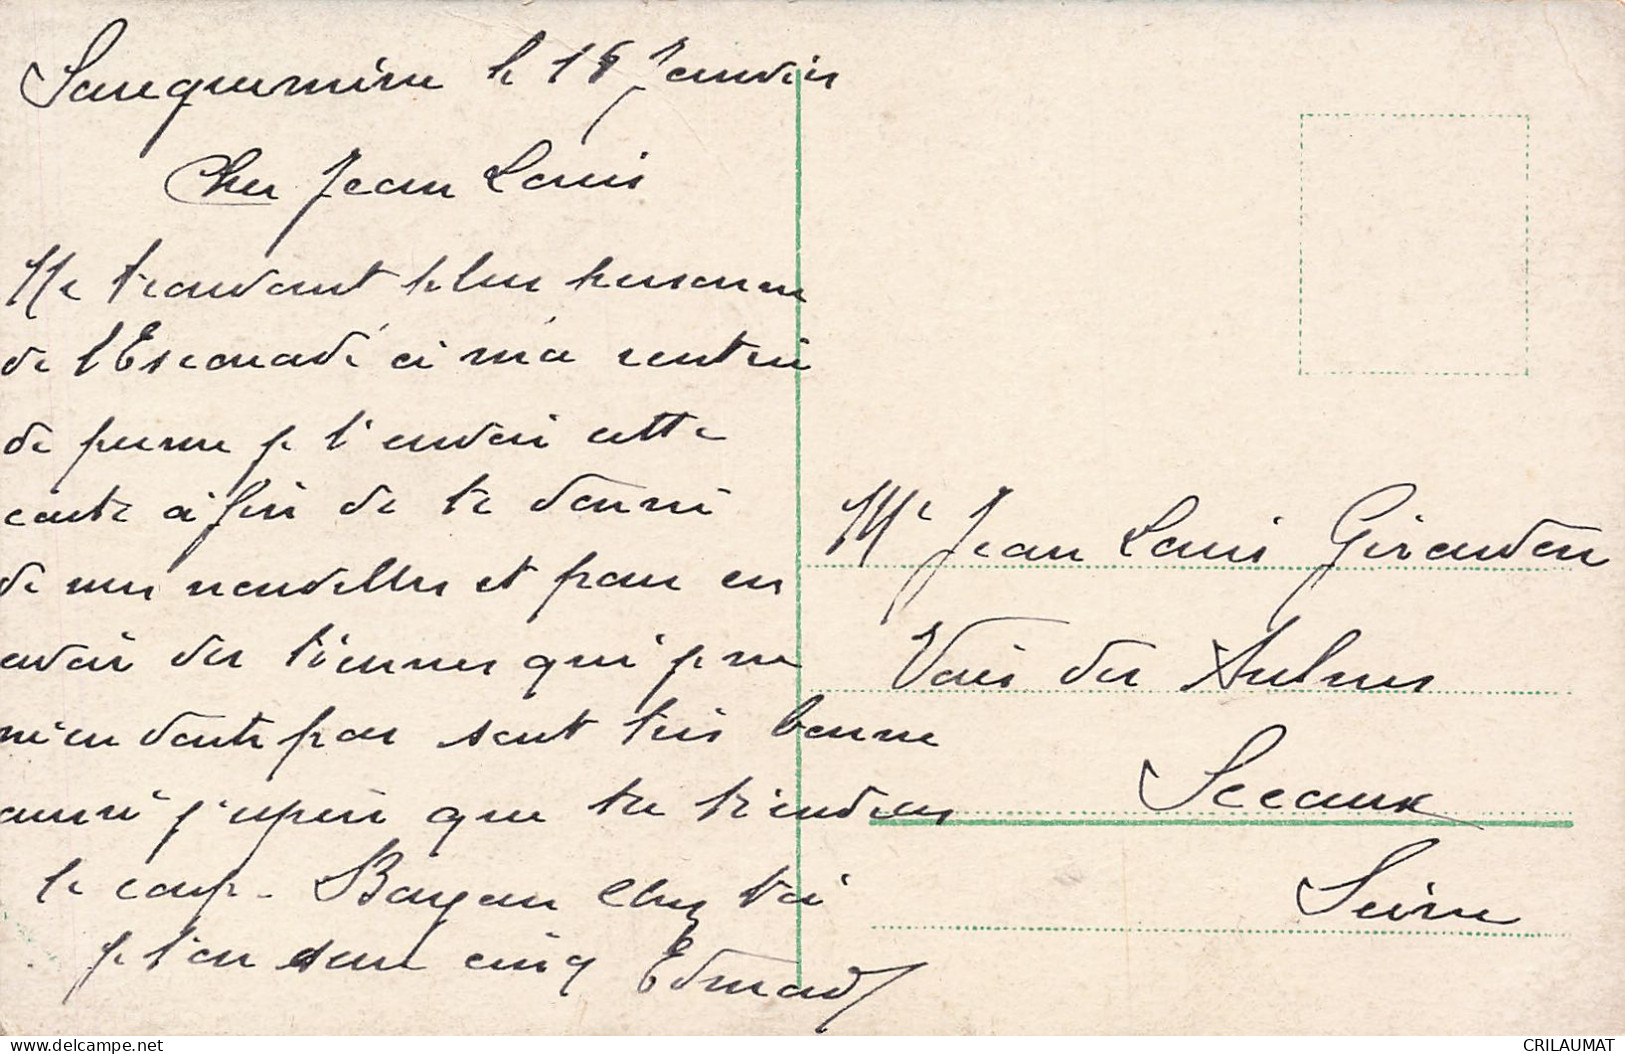 Sarreguemine le 15 Janvier
Cher Jean Louis
Me trouvant plus personne
de l'Escouade à ma rentrée
de perme je t'envoie cette
carte afin de te donné
de mes nouvelles et pour en
avoir des tiennes qui je ne
m'en doute pas sont très bonne
aussi j'espère que tu tiendras
le coup. chez toi
je t'en serre cinq Edmond
Mr Jean Louis Giraudon
Voie des Aulnes
Sceaux
Seine
CRILAUMAT